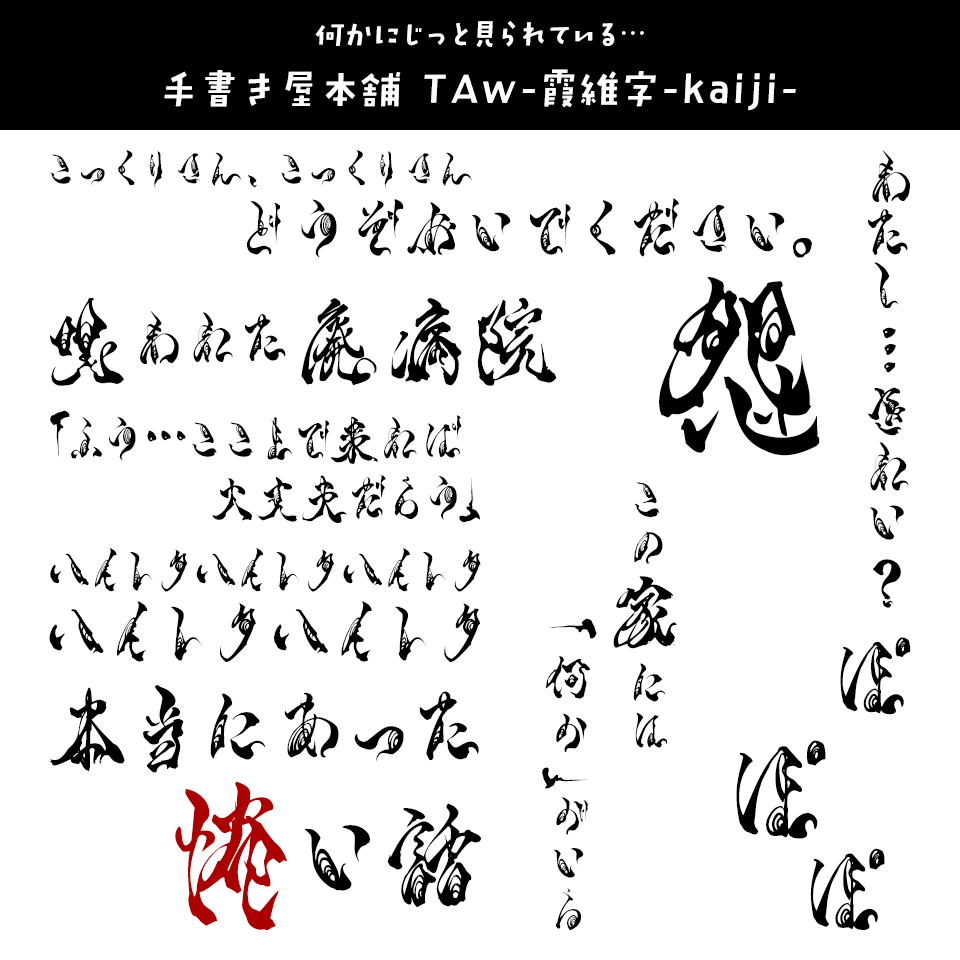 何かにじっと見られている…
手書き屋本舗 TAw-霞維字-kaiji-
こっくりさん、こっくりさん
どうぞおいでください。
わたし…逐れい？
呪われた廃病院
怨
「ふう…ここまで来れば
大丈夫だろう」
ハイレタハイレタハイレタ
ハイレタハイレタ
この家には
「何か」がいる
本当にあった
怖い話
ぽ
ぽ
ぽ